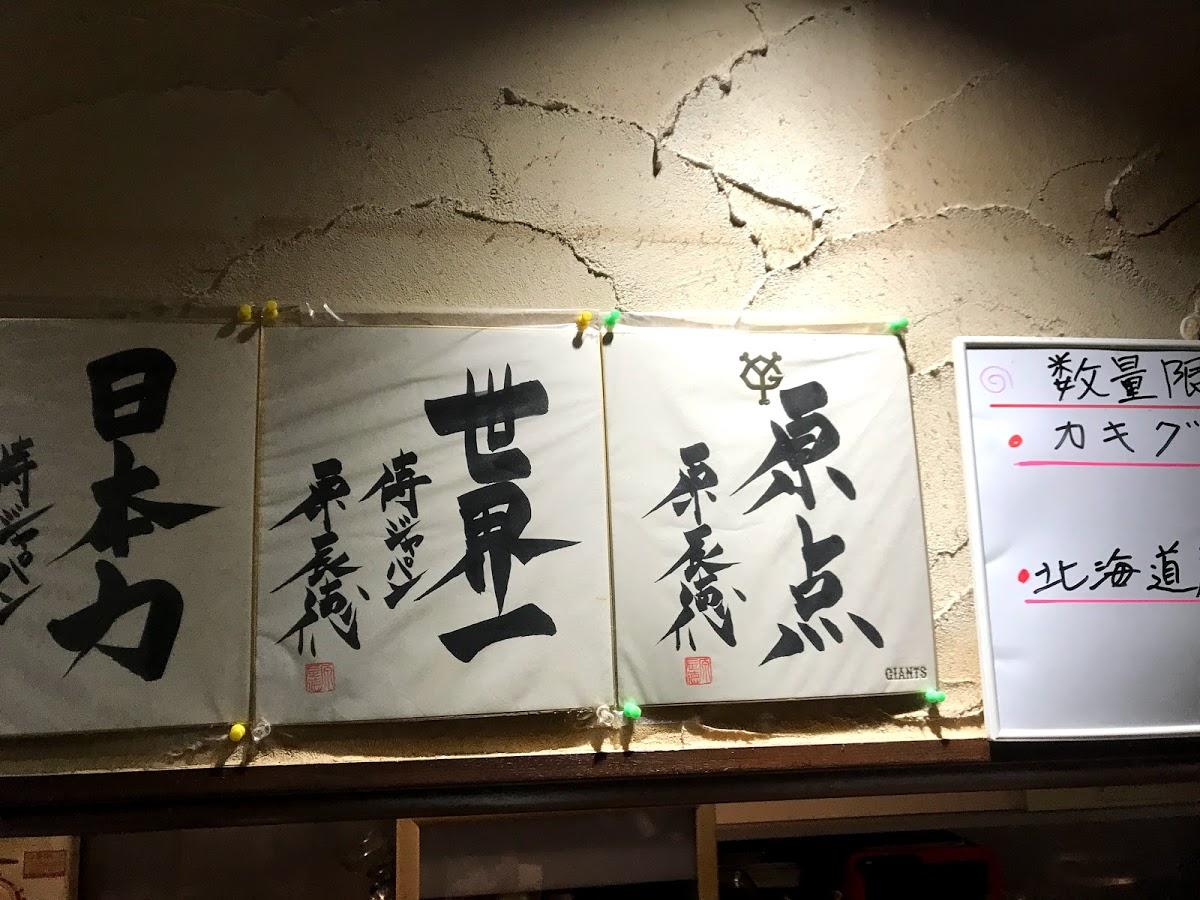 日本力
侍ジャパン
世界一
侍ジャパン
原辰徳
原点
原辰徳
GIANTS
数量限
カキグ
北海道